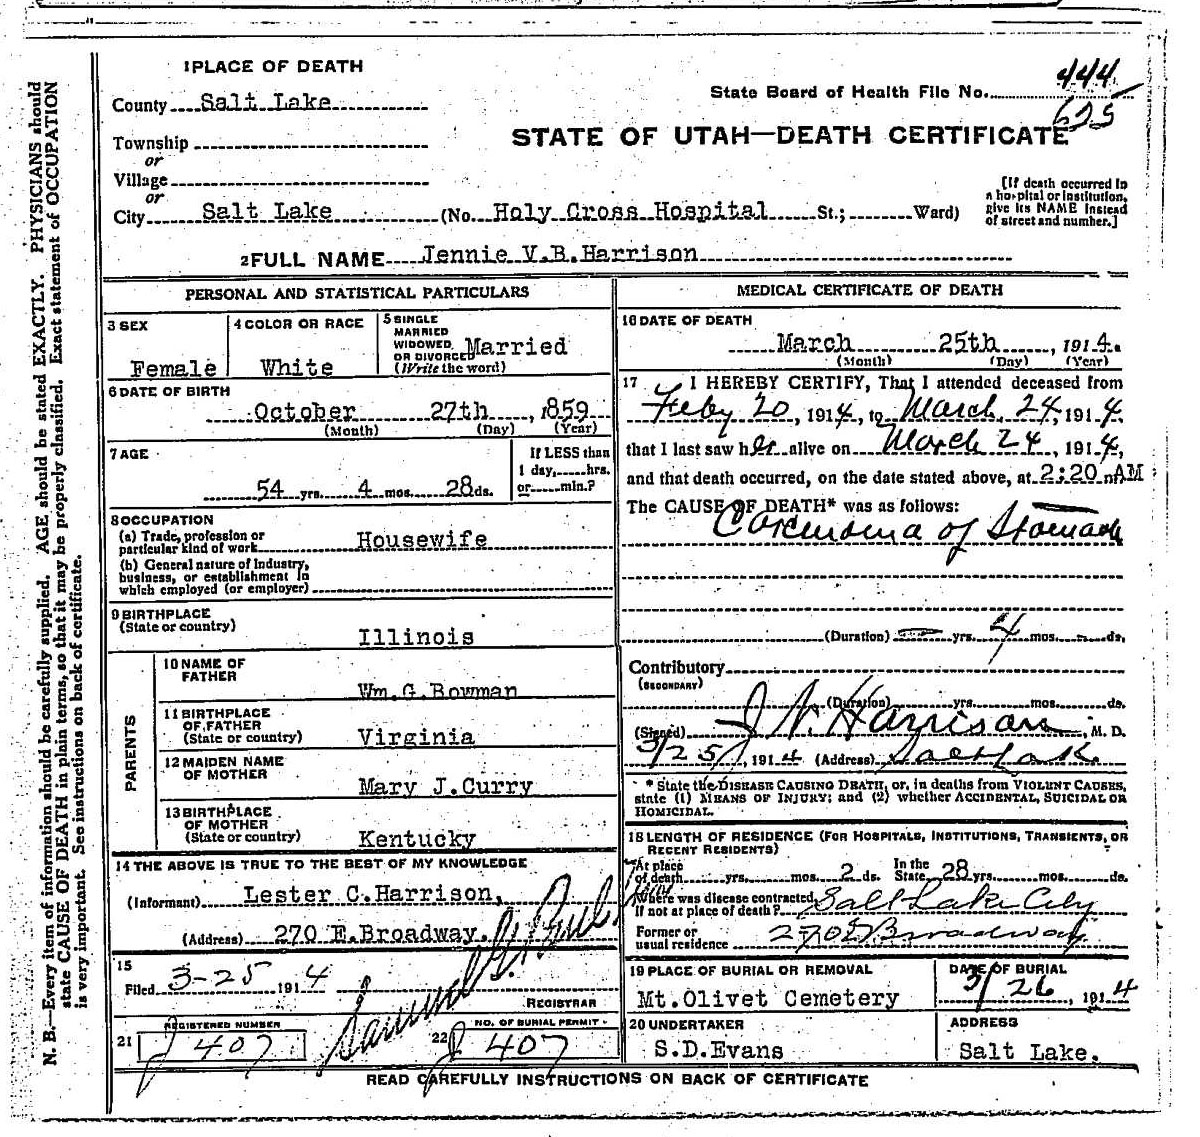 1 PLACE OF DEATH
County Salt Lake
State Board of Health File No. 444
625
STATE OF UTAH—DEATH CERTIFICATE
Township
or
Village
or
City Salt Lake (No. Holy Cross Hospital St.; Ward)
[If death occurred in
a hospital or institution,
give its NAME instead
of street and number.]
2 FULL NAME Jennie V.B.Harrison
PERSONAL AND STATISTICAL PARTICULARS
3 SEX
Female
4 COLOR OR RACE
White
5 SINGLE
MARRIED
WIDOWED
OR DIVORCED
(Write the word)
Married
6 DATE OF BIRTH
October 27th, 1859
(Month) (Day) (Year)
7 AGE
54 yrs. 4 mos. 28 ds.
If LESS than
1 day, hrs.
or min.?
8 OCCUPATION
(a) Trade, profession or
particular kind of work Housewife
(b) General nature of Industry,
business, or establishment in
which employed (or employer)
9 BIRTHPLACE
(State or country)
Illinois
PARENTS
10 NAME OF
FATHER
Wm.G.Bowman
11 BIRTHPLACE
OF FATHER
(State or country) Virginia
12 MAIDEN NAME
OF MOTHER
Mary J.Curry
13 BIRTHPLACE
OF MOTHER
(State or country) Kentucky
14 THE ABOVE IS TRUE TO THE BEST OF MY KNOWLEDGE
(Informant) Lester C.Harrison,
(Address) 270 E.Broadway.
15
Filed 3-25 1914
Samuel G. Paul
REGISTRAR
21 REGISTERED NUMBER
J 407
22 NO. OF BURIAL PERMIT
J 407
MEDICAL CERTIFICATE OF DEATH
16 DATE OF DEATH
March 25th, 1914.
(Month) (Day) (Year)
17 I HEREBY CERTIFY, That I attended deceased from
Feby 20, 1914, to March 24, 1914,
that I last saw her alive on March 24, 1914,
and that death occurred, on the date stated above, at 2:20 AM
The CAUSE OF DEATH* was as follows:
Carcinoma of Stomach
(Duration) yrs. 4 mos. ds.
Contributory
(SECONDARY)
(Duration) yrs. mos. ds.
(Signed) J N Harrison, M. D.
3/25/, 1914 (Address) Salt Lake
* State the DISEASE CAUSING DEATH, or, in deaths from VIOLENT CAUSES,
state (1) MEANS OF INJURY; and (2) whether ACCIDENTAL, SUICIDAL OR
HOMICIDAL.
18 LENGTH OF RESIDENCE (FOR HOSPITALS, INSTITUTIONS, TRANSIENTS, OR
RECENT RESIDENTS)
At place
of death yrs. mos. 2 ds.
In the
State 28 yrs. mos. ds.
Where was disease contracted,
If not at place of death? Salt Lake City
Former or
usual residence 270 E Broadway
19 PLACE OF BURIAL OR REMOVAL
Mt.Olivet Cemetery
DATE OF BURIAL
3/26, 1914
20 UNDERTAKER
S.D.Evans
ADDRESS
Salt Lake.
READ CAREFULLY INSTRUCTIONS ON BACK OF CERTIFICATE
N. B.—Every item of information should be carefully supplied. AGE should be stated EXACTLY. PHYSICIANS should
state CAUSE OF DEATH in plain terms, so that it may be properly classified. Exact statement of OCCUPATION
is very important. See instructions on back of certificate.